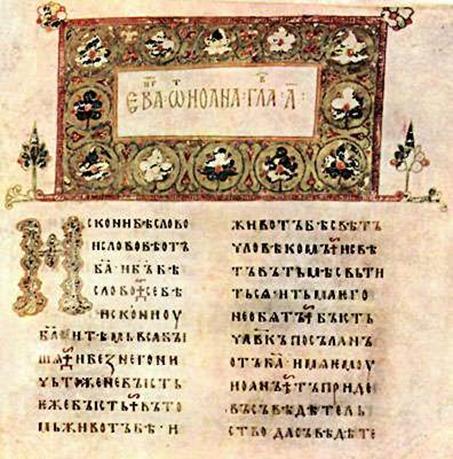 ЄВА·ѠИОАНА·ГЛА·А҃·
ИСКОНИБѢСЛОВО
ИСЛОВОБѢОТЪ
БА҃·ИБ҃ЪБѢ
СЛОВО⁘СЕБѢ
ИСКОНИОУ
БА҃ИТѢМЬВСѦБЫ
ШѦ⁘ИБЕЗНЕГОНИ
ЧЬТОЖЕНЕБЫСТЬ
ЕЖЕБЫСТЬ⁘ВЪТО
МЬЖИВОТЪБѢ·И
ЖИВОТЪБѢСВѢТЪ
ЧЛОВѢКОМЪ⁘ИСВѢ
ТЪВЪТЬМѢСВЬТИ
ТЬСѦ·ИТЬМАѤГО
НЕОБѦТЪ⁘БЫСТЬ
ЧЛ҃ВКЪПОСЪЛАНЪ
ОТЪБА҃·ИМѦѤМОУ
ИОАНЪ⁘ТЪПРИДЕ
ВЪСЪВѢДѢТЕЛЬ
СТВО·ДАСЪВѢДѢТЕ